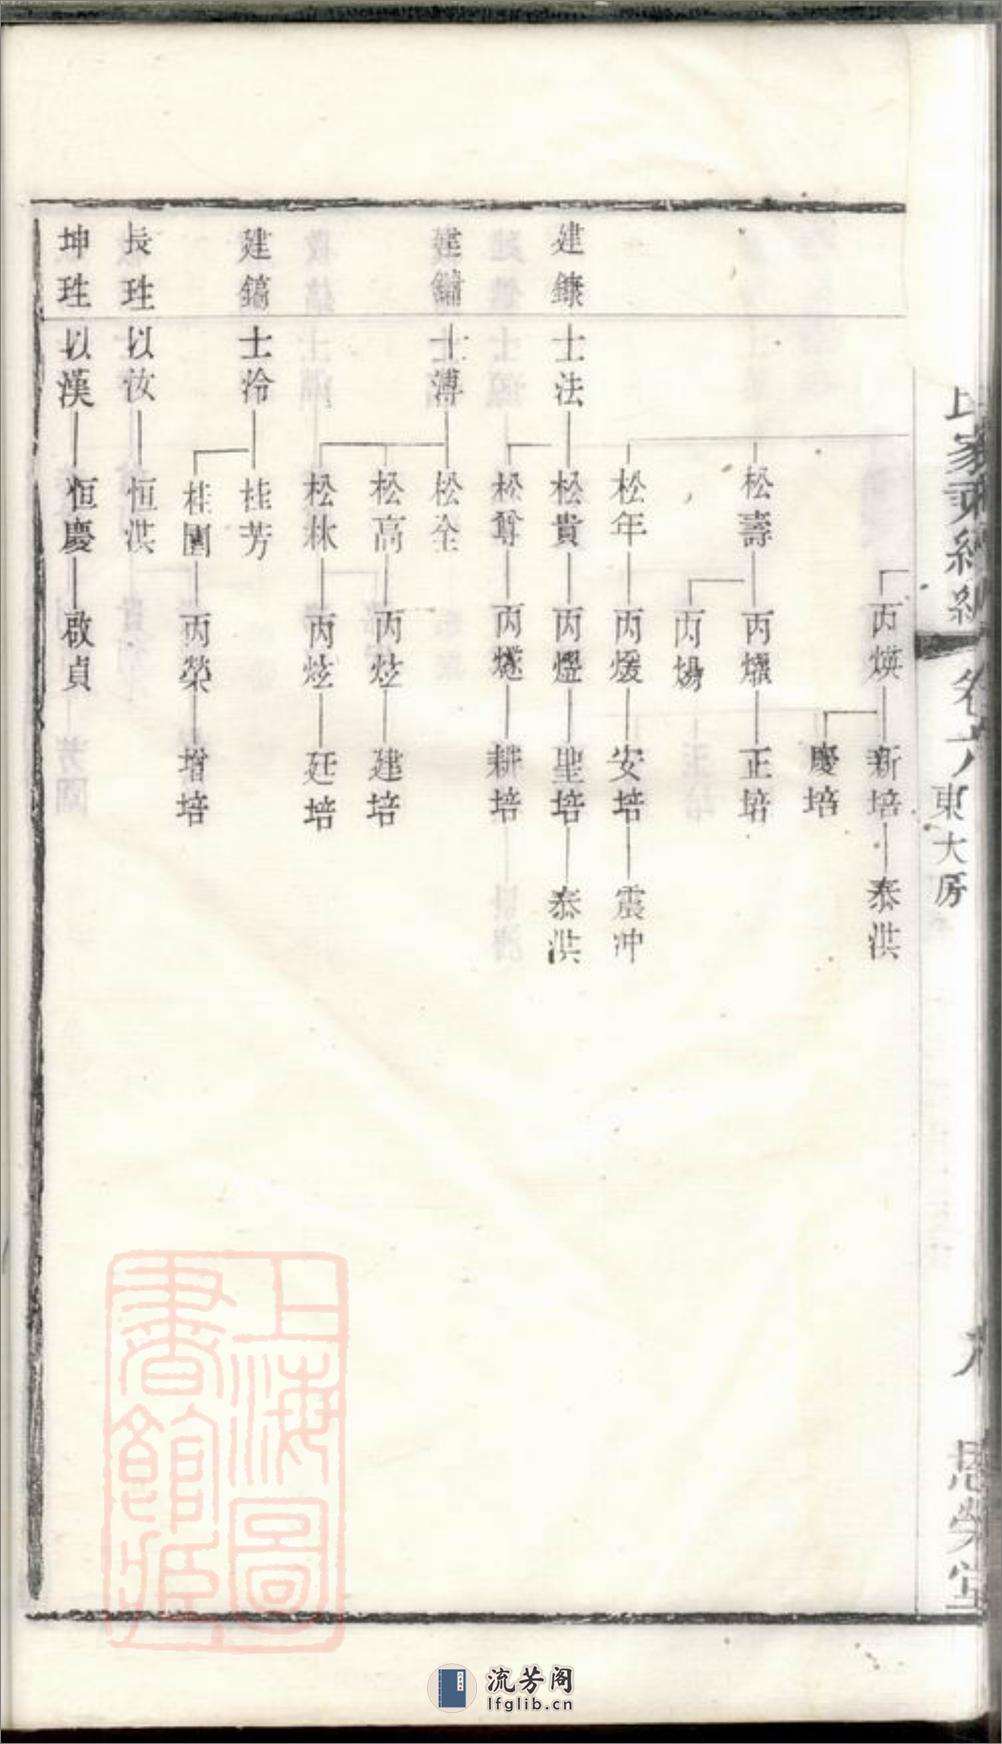 家乘續編
卷六
東大房
九
思榮堂
丙煐
新培
泰洪
慶培
松壽
丙爌
正培
丙煬
松年
丙煖
安培
震冲
建鏮
士法
松貴
丙燿
聖培
泰洪
松尊
丙燧
耕培
建鏽
士溥
松全
松高
丙炫
建培
松林
丙炫
廷培
建鎬
士泠
桂芳
桂園
丙榮
增培
長珄
以汝
恒淇
坤珄
以漢
恒慶
啟貞
上海圖書館藏
流芳阁
lfglib.cn